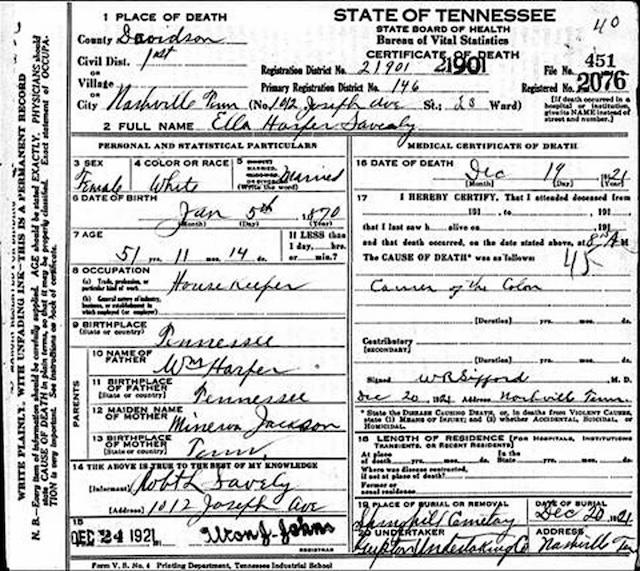 1 PLACE OF DEATH
STATE OF TENNESSEE
STATE BOARD OF HEALTH
Bureau of Vital Statistics
CERTIFICATE OF DEATH
40
County Davidson
Civil Dist. 1st
OR
Village
OR
City Nashville Tenn (No. 1012 Joseph Ave St.; 23 Ward)
Registration District No. 21901 21901 File No. 451
Primary Registration District No. 146 Registered No. 2076
[If death occurred in a hospital or institution, give its NAME instead of street and number.]
2 FULL NAME Ella Harper Savealy
PERSONAL AND STATISTICAL PARTICULARS
3 SEX Female
4 COLOR OR RACE White
5 MARRIED, (Write the word) Married
6 DATE OF BIRTH Jan 5th 1870
(Month) (Day) (Year)
7 AGE 51 yrs. 11 mos. 14 ds.
If LESS than 1 day, hrs. or min.?
8 OCCUPATION
(a) Trade, profession, or particular kind of work House Keeper
(b) General nature of industry, business, or establishment in which employed (or employer)
9 BIRTHPLACE (State or country) Tennessee
PARENTS
10 NAME OF FATHER Wm Harper
11 BIRTHPLACE OF FATHER (State or country) Tennessee
12 MAIDEN NAME OF MOTHER Minerva Jackson
13 BIRTHPLACE OF MOTHER (State or country) Tenn.
14 THE ABOVE IS TRUE TO THE BEST OF MY KNOWLEDGE
(Informant) Robt L Savely
(Address) 1012 Joseph Ave
15 DEC 24 1921 Alton J. Johns
REGISTRAR
MEDICAL CERTIFICATE OF DEATH
16 DATE OF DEATH Dec 19 1921
(Month) (Day) (Year)
17 I HEREBY CERTIFY, That I attended deceased from
191 , to , 191 ,
that I last saw h alive on , 191 ,
and that death occurred, on the date stated above, at 8 A M
The CAUSE OF DEATH* was as follows:
45
Cancer of the Colon
(Duration) yrs. mos. ds.
Contributory
(SECONDARY)
(Duration) yrs. mos. ds.
Signed W R Sifford M. D.
Dec 20 1921 Address Nashville Tenn.
* State the DISEASE CAUSING DEATH, or, in deaths from VIOLENT CAUSES, state (1) MEANS OF INJURY; and (2) whether ACCIDENTAL, SUICIDAL, or HOMICIDAL.
18 LENGTH OF RESIDENCE (FOR HOSPITALS, INSTITUTIONS TRANSIENTS, OR RECENT RESIDENTS)
At place of death yrs. mos. ds. In the State yrs. mos. ds.
Where was disease contracted, if not at place of death?
Former or usual residence
19 PLACE OF BURIAL OR REMOVAL Springhill Cemetery
DATE OF BURIAL Dec 20 1921
20 UNDERTAKER Gupton Undertaking Co
ADDRESS Nashville Ten
Form V. S. No. 4 Printing Department, Tennessee Industrial School
WRITE PLAINLY, WITH UNFADING INK—THIS IS A PERMANENT RECORD
N. B.—Every item of information should be carefully supplied. AGE should be stated EXACTLY. PHYSICIANS should state CAUSE OF DEATH in plain terms, so that it may be properly classified. Exact statement of OCCUPATION is very important. See instructions on back of certificate.